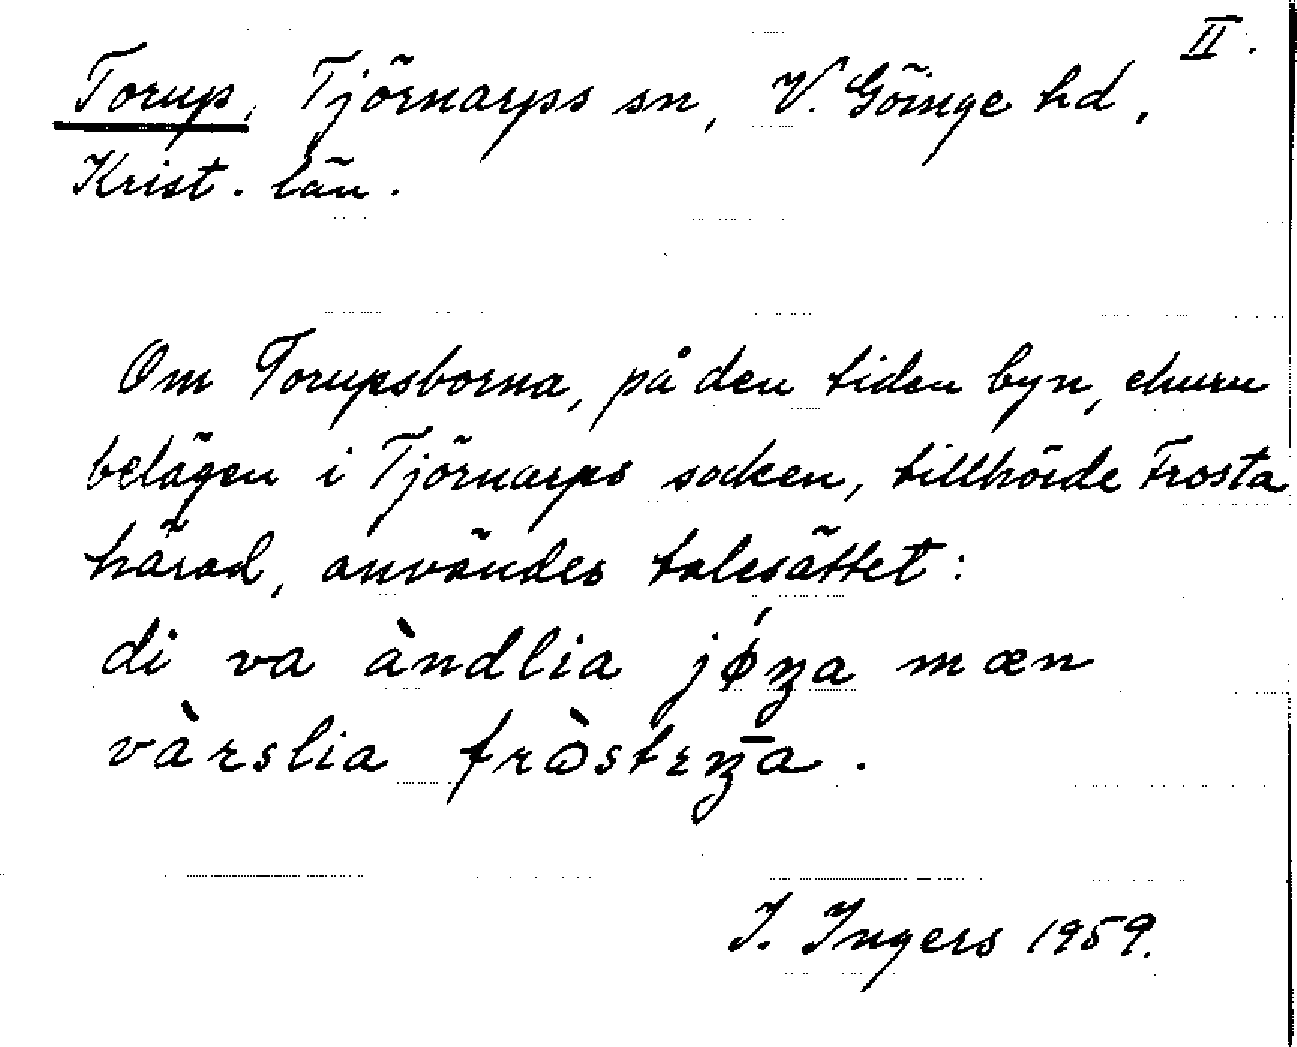 II.
Torup, Tjörnarps sn, V. Göinge hd,
Krist. län.
Om Torupsborna, på den tiden byn, ehuru
belägen i Tjörnarps socken, tillhörde Frosta
härad, användes talesättet:
di va àndlia jǿŋa mæn
vàrslia fròstrŋa.
I. Ingers 1959.